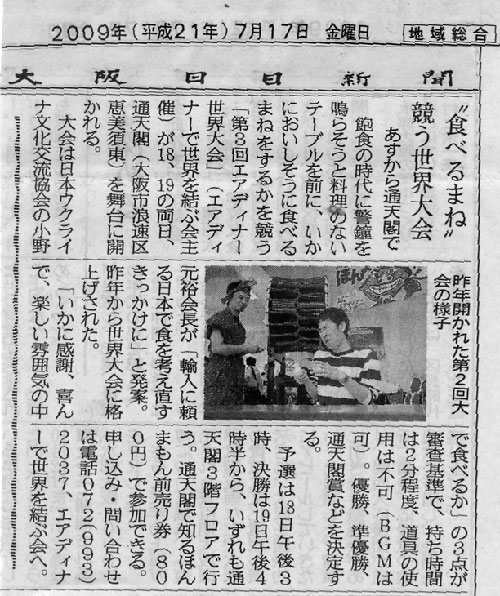 2009年(平成21年)7月17日 金曜日
地域総合
大阪日日新聞
“食べるまね”
競う世界大会
あすから通天閣で
飽食の時代に警鐘を
鳴らそうと料理のない
テーブルを前に、いか
においしそうに食べる
まねをするかを競う
「第3回エアディナー
世界大会」(エアディ
ナーで世界を結ぶ会主
催)が18、19の両日、
通天閣(大阪市浪速区
恵美須東)を舞台に開
かれる。
大会は日本ウクライ
ナ文化交流協会の小野
元裕会長が「輸入に頼
る日本で食を考え直す
きっかけに」と発案。
昨年から世界大会に格
上げされた。
「いかに感謝、喜ん
で、楽しい雰囲気の中
で食べるか」の3点が
審査基準で、持ち時間
は2分程度、道具の使
用は不可(BGMは
可)。優勝、準優勝、
通天閣賞などを決定す
る。
予選は18日午後3
時、決勝は19日午後4
時半から、いずれも通
天閣3階フロアで行
う。通天閣で知るほん
まもん前売り券(80
0円)で参加できる。
申し込み・問い合わせ
は電話072(993)
2037、エアディナ
ーで世界を結ぶ会へ。
昨年開かれた第2回大
会の様子